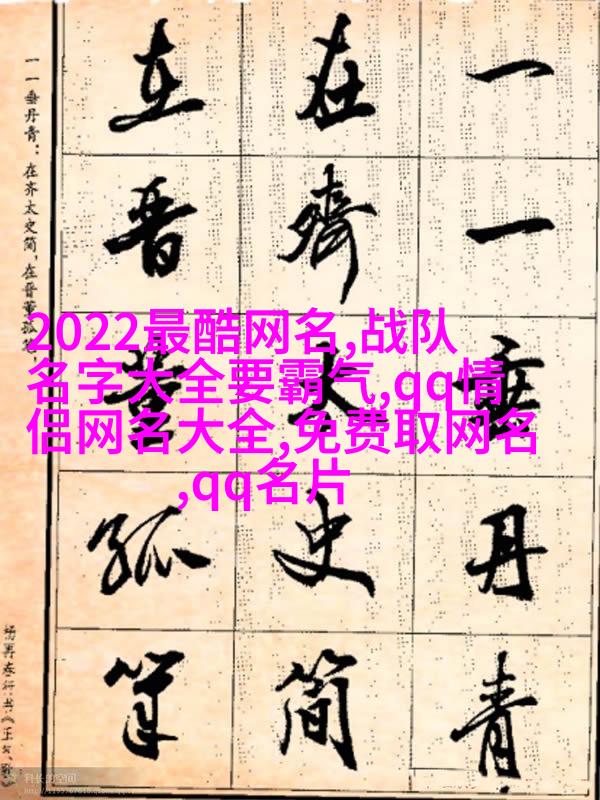 2022最酷网名,战队
名字大全要霸气,qq情
侣网名大全,免费取网名
,qq名片
一一垂丹青
在齊太史簡
在晋董狐筆
一一垂丹青：在齐太史简,在晋董狐笔
杨再春行书《正气歌
科长的空间